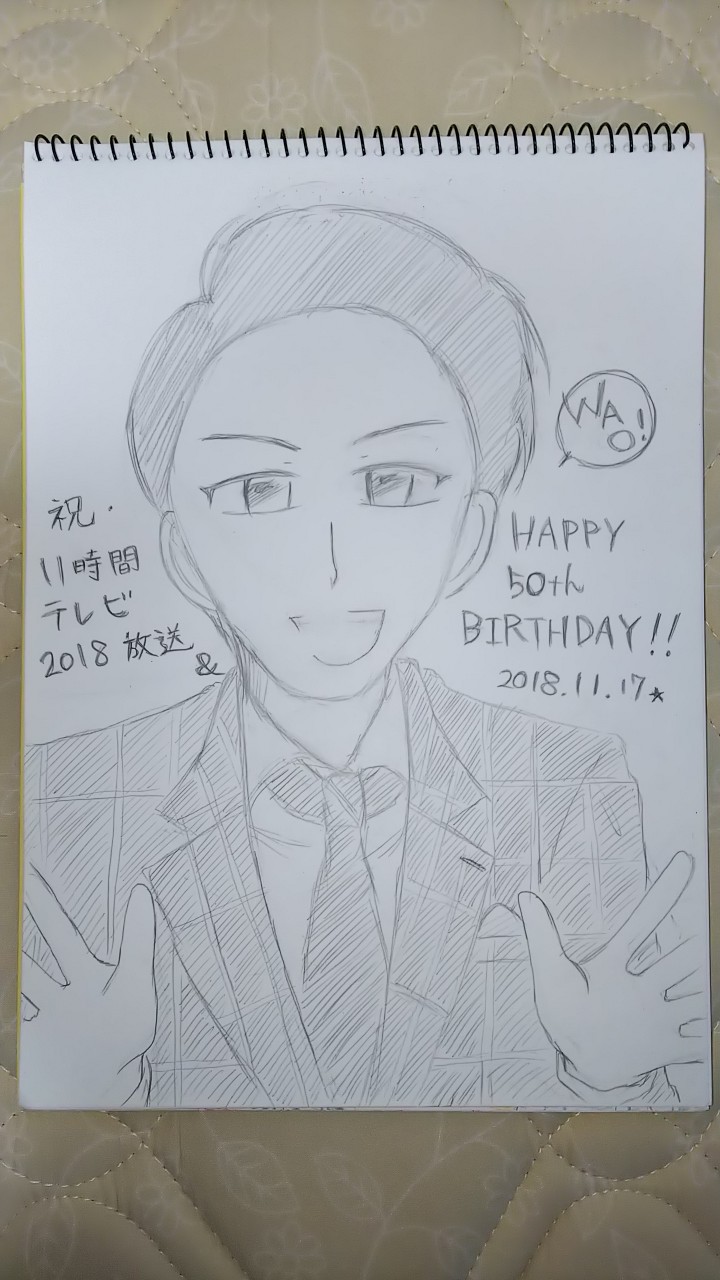 祝・
11時間
テレビ
2018 放送
&
WA
O!
HAPPY
50th
BIRTHDAY!!
2018.11.17☆